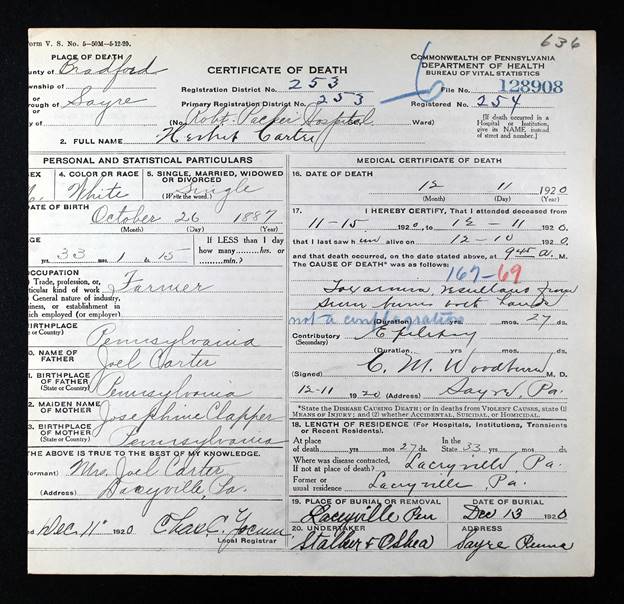 636
Form V. S. No. 5—50M—5-12-20.
PLACE OF DEATH
County of Bradford
Township of
or
Borough of Sayre
or
City of
CERTIFICATE OF DEATH
Registration District No. 253
Primary Registration District No. 253
(No. Robt. Packer Hospital Ward)
COMMONWEALTH OF PENNSYLVANIA
DEPARTMENT OF HEALTH
BUREAU OF VITAL STATISTICS
File No. 128908
Registered No. 254
6
[If death occurred in a
Hospital or Institution,
give its NAME instead
of street and number.]
2. FULL NAME Herbert Carter
PERSONAL AND STATISTICAL PARTICULARS
SEX
4. COLOR OR RACE
White
5. SINGLE, MARRIED, WIDOWED
OR DIVORCED
(Write the word.) Single
DATE OF BIRTH
October 26 1887
(Month) (Day) (Year)
AGE
33 1 15
If LESS than 1 day
how many hrs.
or min.?
OCCUPATION
Trade, profession, or
particular kind of work Farmer
General nature of industry,
business, or establishment in
which employed (or employer)
BIRTHPLACE
(State or Country) Pennsylvania
10. NAME OF
FATHER Joel Carter
11. BIRTHPLACE
OF FATHER
(State or Country) Pennsylvania
12. MAIDEN NAME
OF MOTHER Josephine Clapper
13. BIRTHPLACE
OF MOTHER
(State or Country) Pennsylvania
THE ABOVE IS TRUE TO THE BEST OF MY KNOWLEDGE.
(Informant) Mrs. Joel Carter
(Address) Laceyville, Pa.
Filed Dec 11 1920 Chas. C. Yocum
Local Registrar
MEDICAL CERTIFICATE OF DEATH
16. DATE OF DEATH
12 11 1920
(Month) (Day) (Year)
17. I HEREBY CERTIFY, That I attended deceased from
11-15 1920, to 12-11 1920
that I last saw him alive on 12-10 1920.
and that death occurred, on the date stated above, at 9 45 a. M.
The CAUSE OF DEATH* was as follows:
167-69
Toxaemia resulting from
burns both hands
not a conflagration
(Duration) yrs. mos. 27 ds.
Contributory Epilepsy
(Secondary)
(Duration) yrs. mos. ds.
(Signed) C. M. Woodburn M. D.
12-11 1920 (Address) Sayre, Pa.
*State the DISEASE CAUSING DEATH; or in deaths from VIOLENT CAUSES, state (1)
MEANS OF INJURY; and (2) whether ACCIDENTAL, SUICIDAL, or HOMICIDAL.
18. LENGTH OF RESIDENCE (For Hospitals, Institutions, Transients
or Recent Residents).
At place
of death yrs. mos. 27 ds.
In the
State 33 yrs. mos. ds.
Where was disease contracted,
If not at place of death? Laceyville Pa.
Former or
usual residence Laceyville Pa.
19. PLACE OF BURIAL OR REMOVAL
Laceyville Pen
DATE OF BURIAL
Dec 13 1920
20. UNDERTAKER
Stalker & OShea
ADDRESS
Sayre Penna